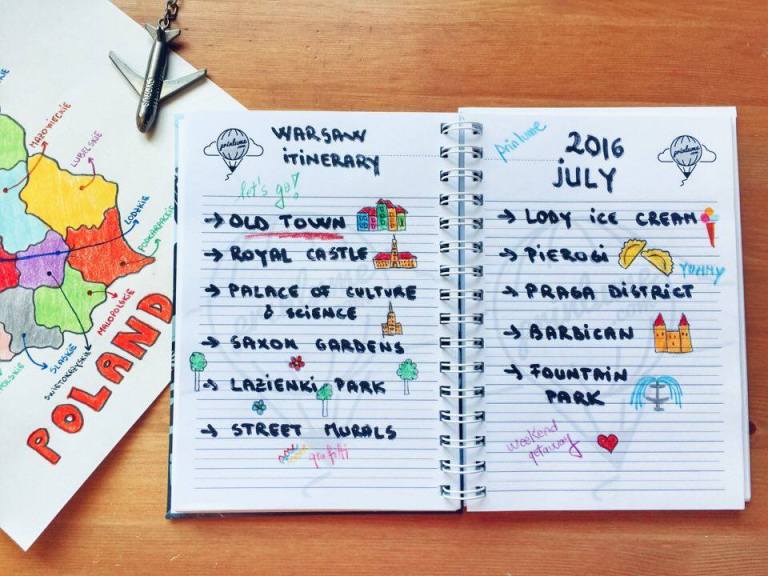 MAZOWIECKIE
LUBELSKIE
ŁÓDZKIE
PODKARPACKIE
MAŁOPOLSKIE
ŚLĄSKIE
ŚWIĘTOKRZYSKIE
POLAND
printume
WARSAW
ITINERARY
let's go!
→ OLD TOWN
→ ROYAL CASTLE
→ PALACE OF CULTURE
& SCIENCE
→ SAXON GARDENS
→ LAZIENKI PARK
→ STREET MURALS
graffiti
printume
2016
JULY
printume
→ LODY ICE CREAM
→ PIEROGI
YUMMY
→ PRAGA DISTRICT
→ BARBICAN
→ FOUNTAIN
PARK
weekend
getaway